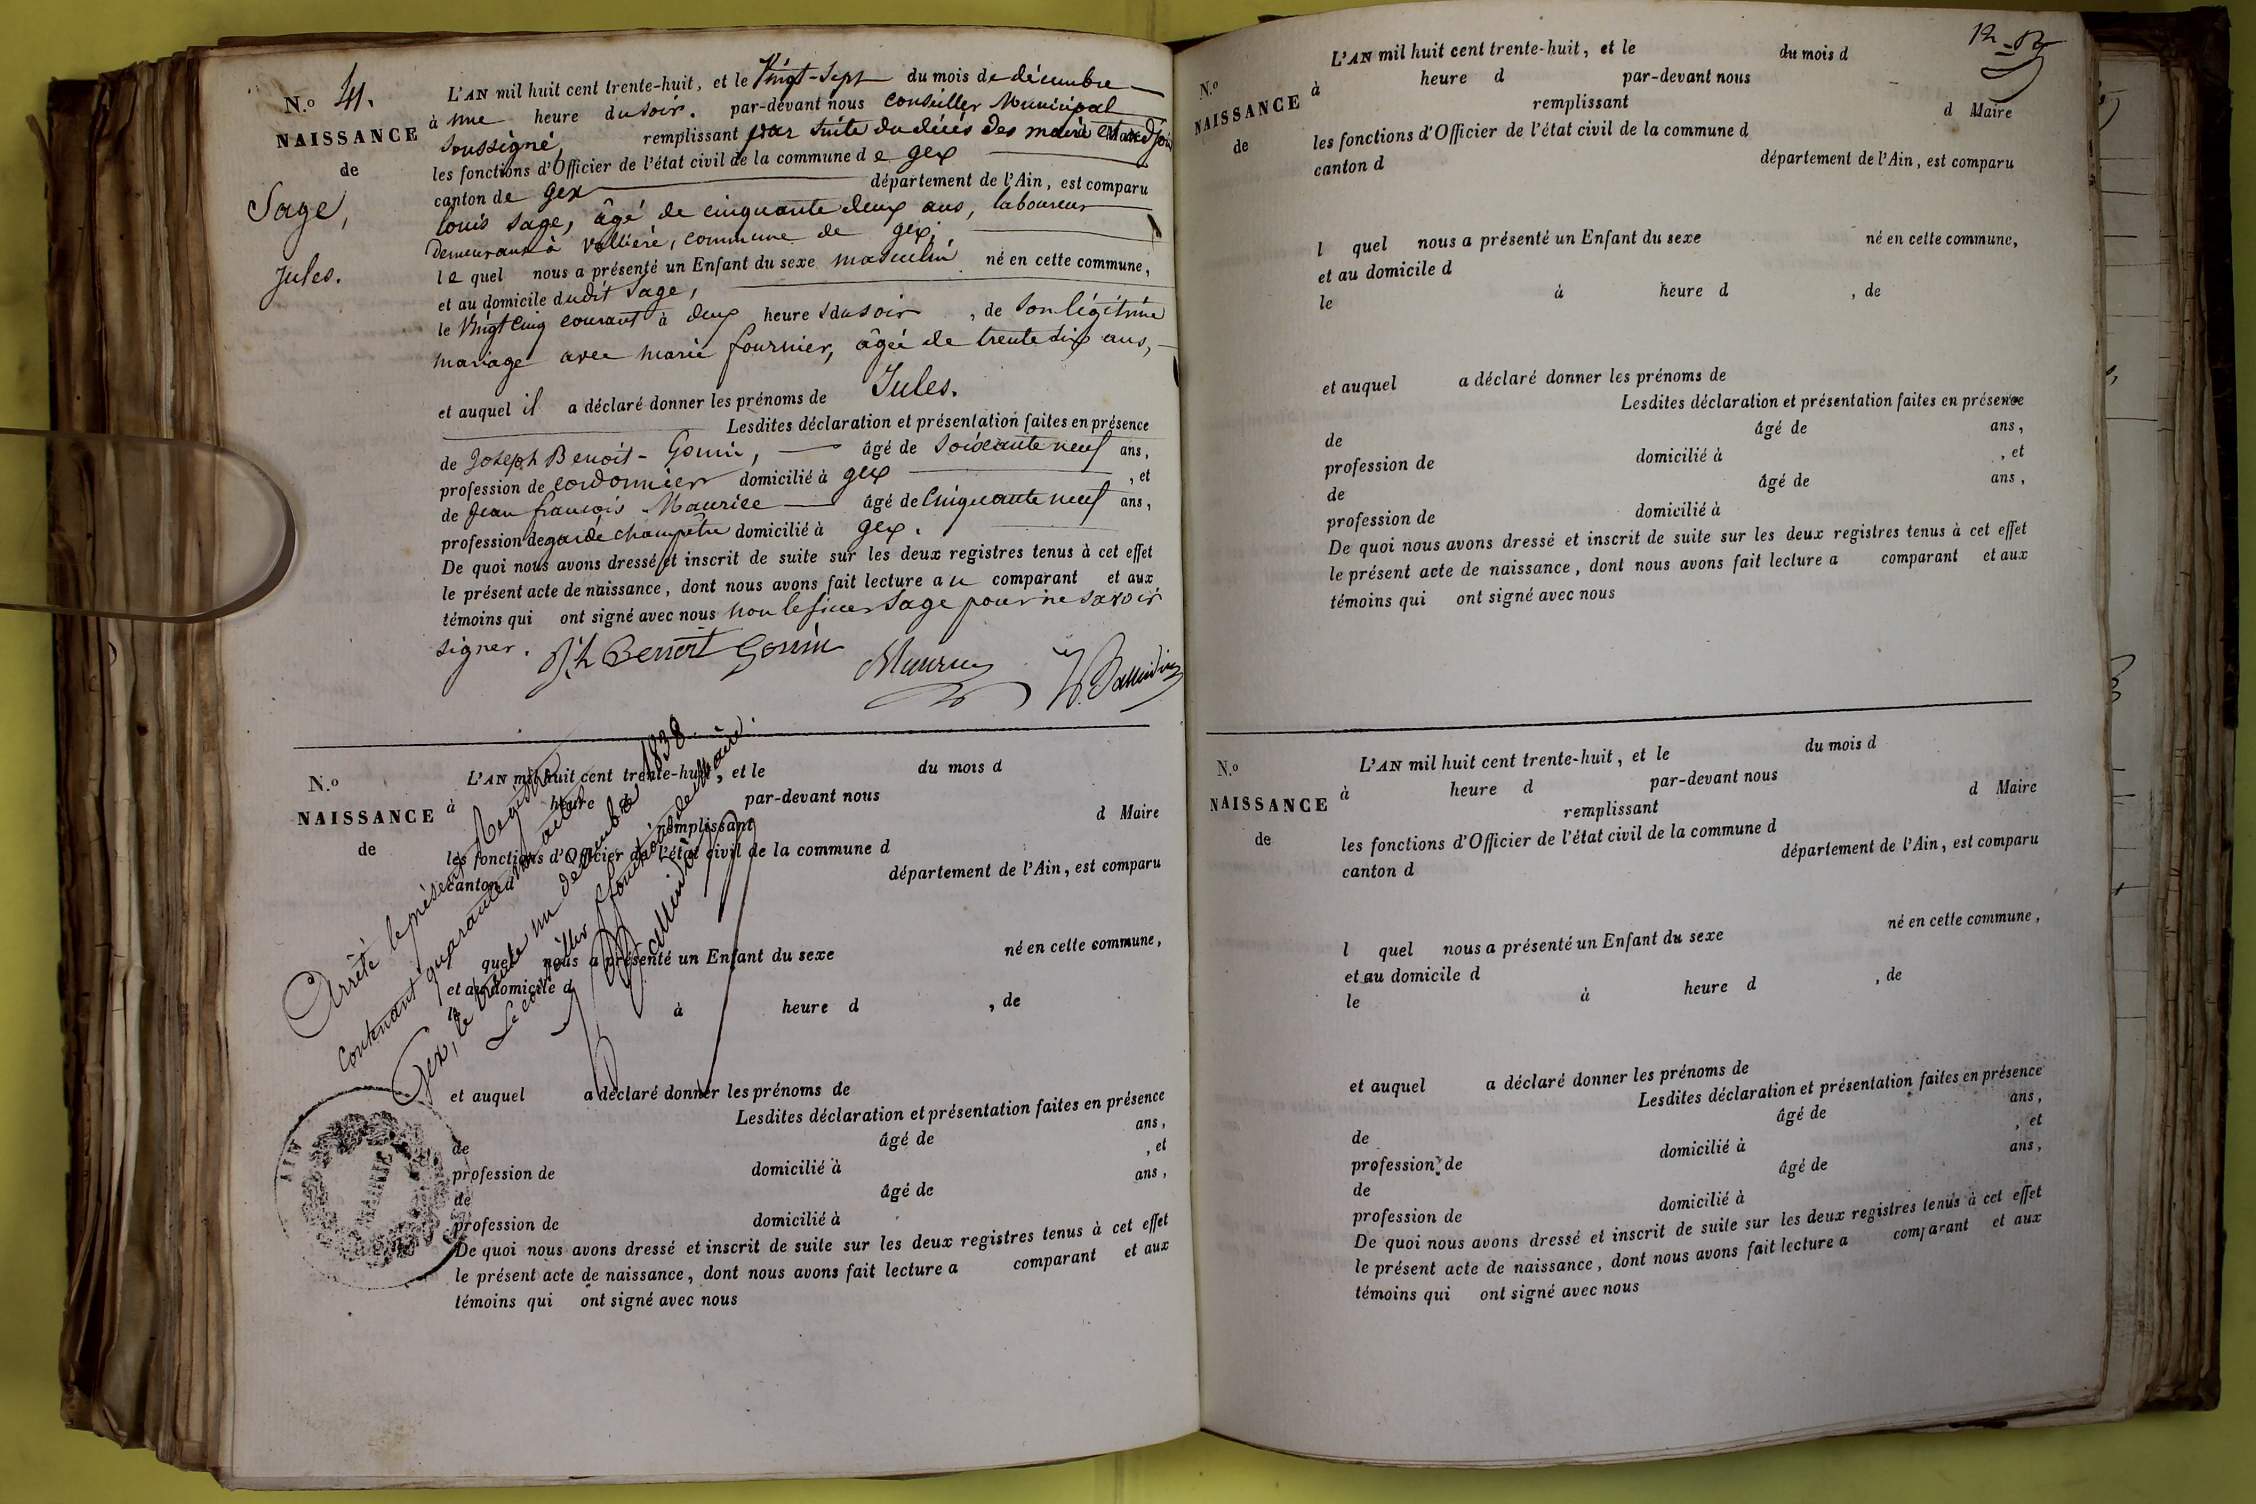 N.o 41.
NAISSANCE
de
Sage,
Jules.
L'AN mil huit cent trente-huit, et le Vingt-Sept du mois de décembre
à une heure du soir. par-devant nous Conseiller Municipal
soussigné, remplissant par suite du décès des maire et adjoint Maire
les fonctions d'Officier de l'état civil de la commune de Gex
canton de Gex département de l'Ain, est comparu
Louis Sage, âgé de cinquante deux ans, laboureur
demeurant à , commune de Gex.
le quel nous a présenté un Enfant du sexe masculin né en cette commune,
et au domicile dudit Sage,
le Vingt Cinq courant à deux heures du soir, de Son légitime
mariage avec marie fournier, âgée de trente six ans,
et auquel il a déclaré donner les prénoms de Jules.
Lesdites déclaration et présentation faites en présence
de Joseph Benoit-Gonin, âgé de Soixante neuf ans,
profession de cordonnier domicilié à Gex, et
de Jean françois Maurice âgé de Cinquante neuf ans,
profession de garde champêtre domicilié à Gex.
De quoi nous avons dressé et inscrit de suite sur les deux registres tenus à cet effet
le présent acte de naissance, dont nous avons fait lecture au comparant et aux
témoins qui ont signé avec nous non le sieur Sage pour ne savoir
signer. Jh Benoit Gonin Maurice
N.o
NAISSANCE
de
L'AN mil huit cent trente-huit, et le du mois d
à heure d par-devant nous
remplissant d Maire
les fonctions d'Officier de l'état civil de la commune d
canton d département de l'Ain, est comparu
quel nous a présenté un Enfant du sexe né en cette commune,
et au domicile d
le à heure d , de
et auquel a déclaré donner les prénoms de
Lesdites déclaration et présentation faites en présence
de âgé de ans,
profession de domicilié à , et
de âgé de ans,
profession de domicilié à
De quoi nous avons dressé et inscrit de suite sur les deux registres tenus à cet effet
le présent acte de naissance, dont nous avons fait lecture a comparant et aux
témoins qui ont signé avec nous
Arrêté le présent Registre
contenant quarante un actes
Gex, le trente un décembre 1838.
Le conseiller ffonctions de Maire.
AIN
MAIRIE
N.o
NAISSANCE
de
L'AN mil huit cent trente-huit, et le du mois d
à heure d par-devant nous
remplissant d Maire
les fonctions d'Officier de l'état civil de la commune d
canton d département de l'Ain, est comparu
l quel nous a présenté un Enfant du sexe né en cette commune,
et au domicile d
le à heure d , de
et auquel a déclaré donner les prénoms de
Lesdites déclaration et présentation faites en présence
de âgé de ans,
profession de domicilié à , et
de âgé de ans,
profession de domicilié à
De quoi nous avons dressé et inscrit de suite sur les deux registres tenus à cet effet
le présent acte de naissance, dont nous avons fait lecture a comparant et aux
témoins qui ont signé avec nous
N.o
NAISSANCE
de
L'AN mil huit cent trente-huit, et le du mois d
à heure d par-devant nous
remplissant d Maire
les fonctions d'Officier de l'état civil de la commune d
canton d département de l'Ain, est comparu
l quel nous a présenté un Enfant du sexe né en cette commune,
et au domicile d
le à heure d , de
et auquel a déclaré donner les prénoms de
Lesdites déclaration et présentation faites en présence
de âgé de ans,
profession de domicilié à , et
de âgé de ans,
profession de domicilié à
De quoi nous avons dressé et inscrit de suite sur les deux registres tenus à cet effet
le présent acte de naissance, dont nous avons fait lecture a comparant et aux
témoins qui ont signé avec nous